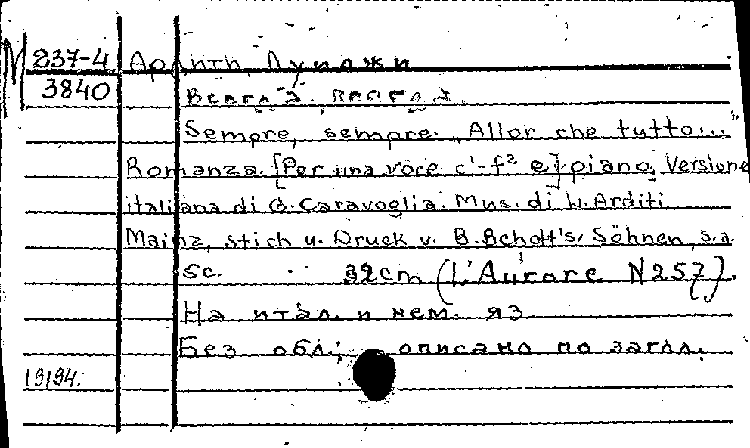 М 237-4 Ардити, Луиджи
3840 Всегда, всегда.
Sempre, sempre. „Allor che tutto..."
Romanza. [Per una voce c¹-f² e] piano. Versione
italiana di G. Caravoglia. Mus. di L. Arditi
Mainz, stich u. Druck v. B. Schott's Söhnen, s.a
sc. 32cm (L'Aurore N 257).
На итал. и нем. яз.
Без обл.; описано по загл.
19194.